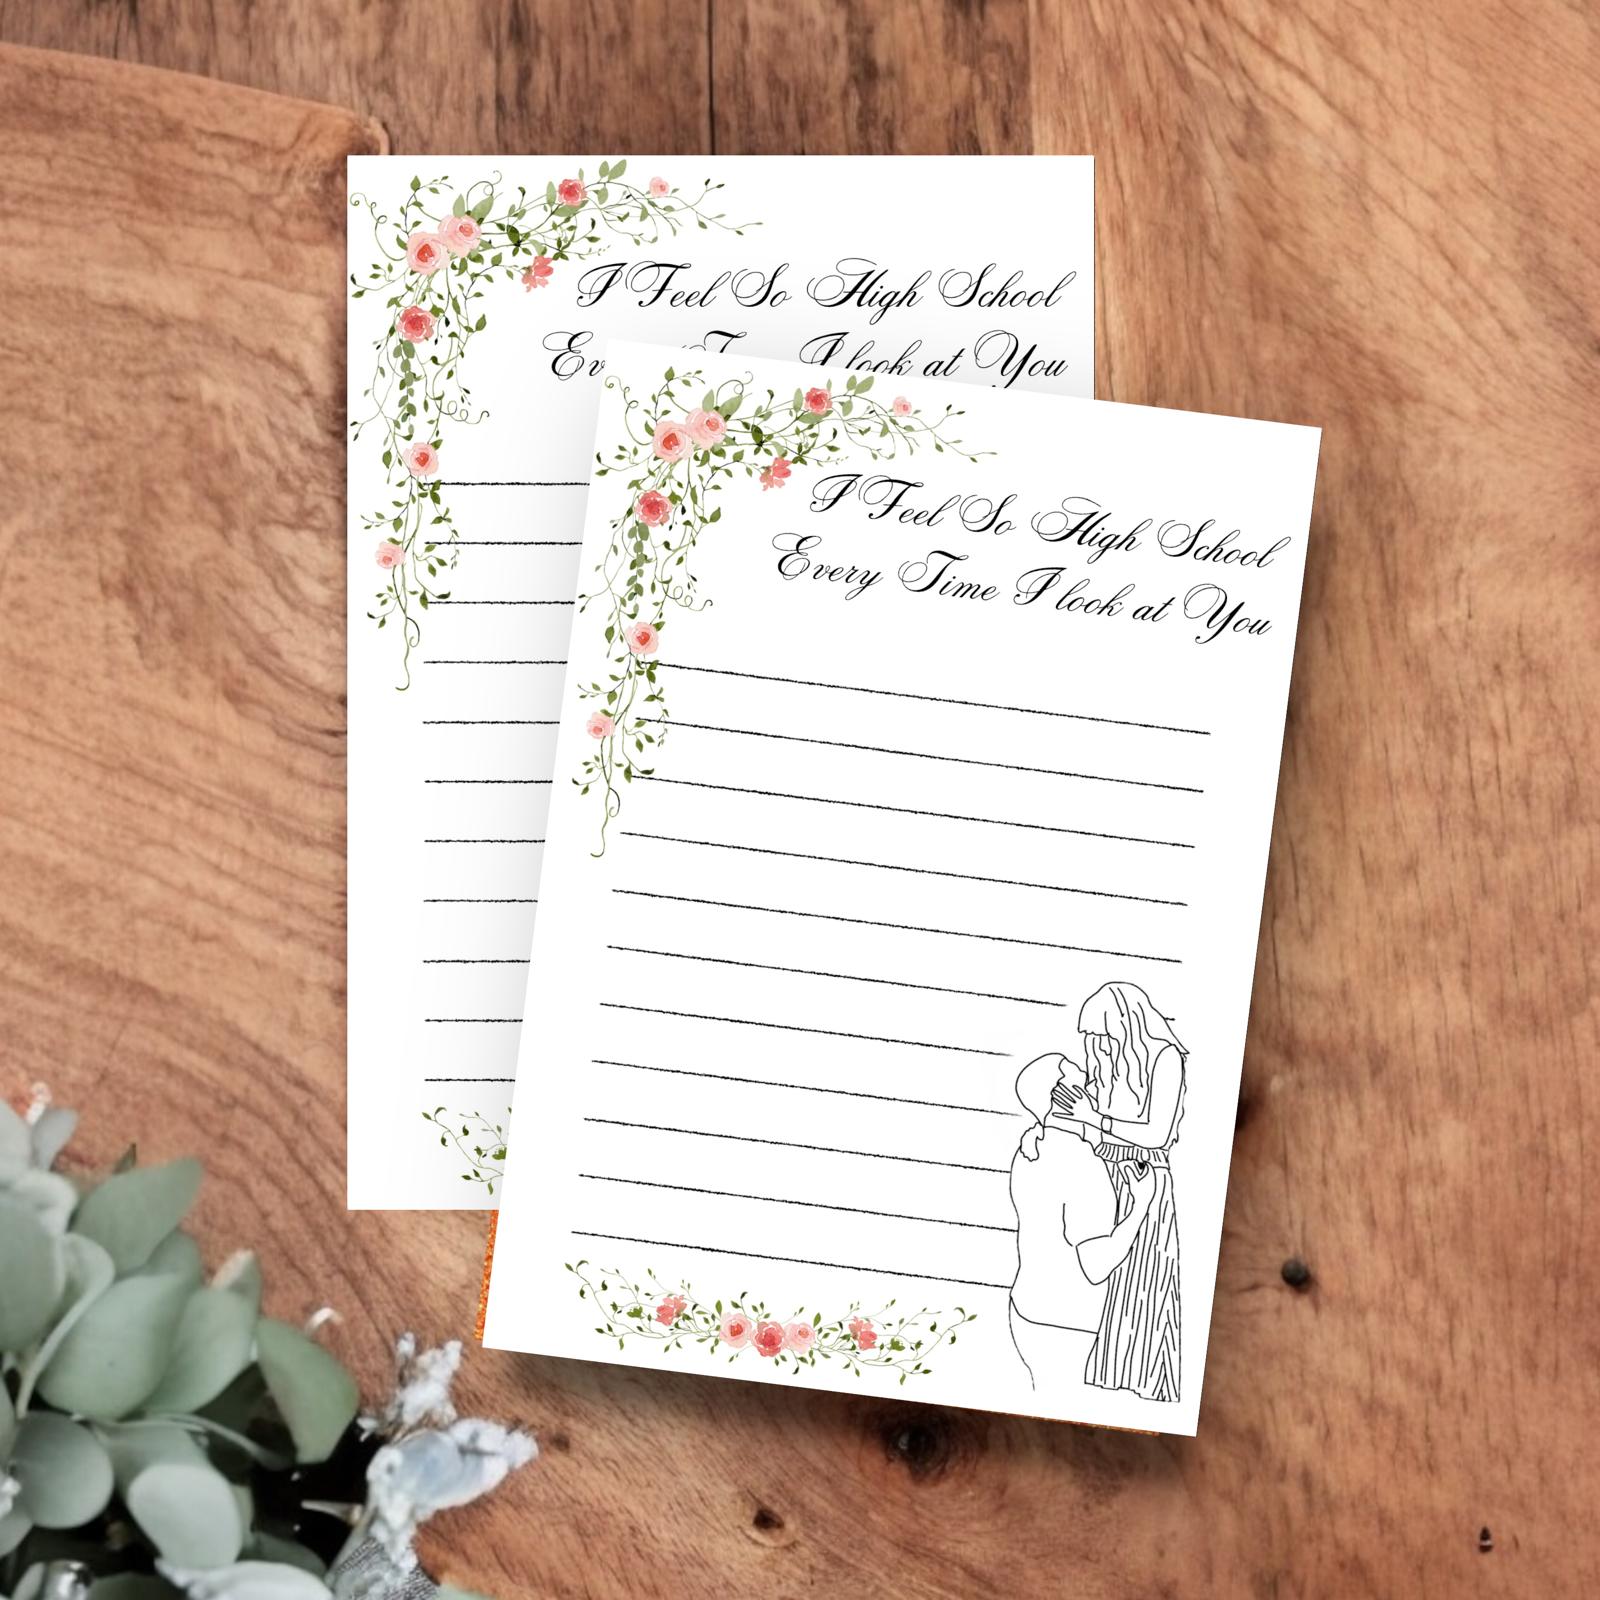 I Feel So High School
Ev    T    I look at You
I Feel So High School
Every Time I look at You